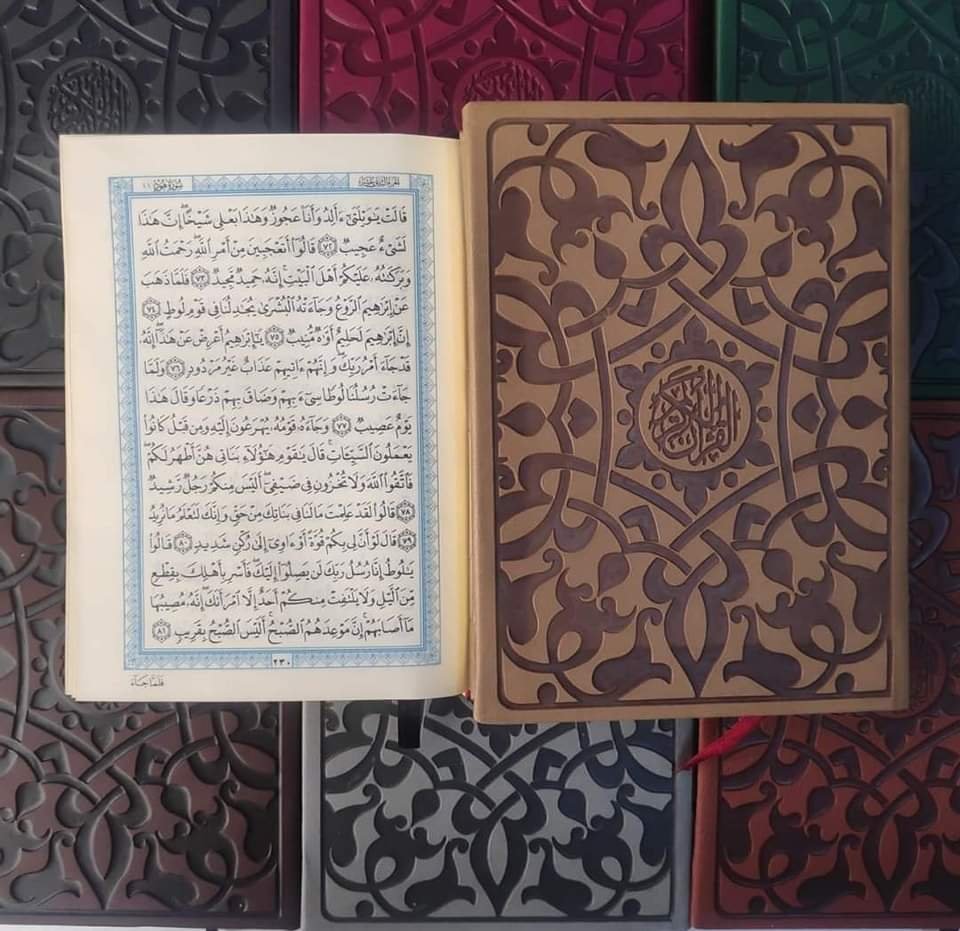 الجُزءُ الثَّانِي عَشَرَ
سُورَةُ هُودٍ ١١
قَالَتْ يَٰوَيْلَتَىٰٓ ءَأَلِدُ وَأَنَا۠ عَجُوزٌ وَهَٰذَا بَعْلِى شَيْخًا إِنَّ هَٰذَا
لَشَىْءٌ عَجِيبٌ ٧٢ قَالُوٓا۟ أَتَعْجَبِينَ مِنْ أَمْرِ ٱللَّهِ رَحْمَتُ ٱللَّهِ
وَبَرَكَٰتُهُۥ عَلَيْكُمْ أَهْلَ ٱلْبَيْتِ إِنَّهُۥ حَمِيدٌ مَّجِيدٌ ٧٣ فَلَمَّا ذَهَبَ
عَنْ إِبْرَٰهِيمَ ٱلرَّوْعُ وَجَآءَتْهُ ٱلْبُشْرَىٰ يُجَٰدِلُنَا فِى قَوْمِ لُوطٍ ٧٤
إِنَّ إِبْرَٰهِيمَ لَحَلِيمٌ أَوَّٰهٌ مُّنِيبٌ ٧٥ يَٰٓإِبْرَٰهِيمُ أَعْرِضْ عَنْ هَٰذَآ إِنَّهُۥ
قَدْ جَآءَ أَمْرُ رَبِّكَ وَإِنَّهُمْ ءَاتِيهِمْ عَذَابٌ غَيْرُ مَرْدُودٍ ٧٦ وَلَمَّا
جَآءَتْ رُسُلُنَا لُوطًا سِىٓءَ بِهِمْ وَضَاقَ بِهِمْ ذَرْعًا وَقَالَ هَٰذَا
يَوْمٌ عَصِيبٌ ٧٧ وَجَآءَهُۥ قَوْمُهُۥ يُهْرَعُونَ إِلَيْهِ وَمِن قَبْلُ كَانُوا۟
يَعْمَلُونَ ٱلسَّيِّـَٔاتِ قَالَ يَٰقَوْمِ هَٰٓؤُلَآءِ بَنَاتِى هُنَّ أَطْهَرُ لَكُمْ
فَٱتَّقُوا۟ ٱللَّهَ وَلَا تُخْزُونِ فِى ضَيْفِىٓ أَلَيْسَ مِنكُمْ رَجُلٌ رَّشِيدٌ
٧٨ قَالُوا۟ لَقَدْ عَلِمْتَ مَا لَنَا فِى بَنَاتِكَ مِنْ حَقٍّ وَإِنَّكَ لَتَعْلَمُ مَا نُرِيدُ
٧٩ قَالَ لَوْ أَنَّ لِى بِكُمْ قُوَّةً أَوْ ءَاوِىٓ إِلَىٰ رُكْنٍ شَدِيدٍ ٨٠ قَالُوا۟
يَٰلُوطُ إِنَّا رُسُلُ رَبِّكَ لَن يَصِلُوٓا۟ إِلَيْكَ فَأَسْرِ بِأَهْلِكَ بِقِطْعٍ
مِّنَ ٱلَّيْلِ وَلَا يَلْتَفِتْ مِنكُمْ أَحَدٌ إِلَّا ٱمْرَأَتَكَ إِنَّهُۥ مُصِيبُهَا
مَآ أَصَابَهُمْ إِنَّ مَوْعِدَهُمُ ٱلصُّبْحُ أَلَيْسَ ٱلصُّبْحُ بِقَرِيبٍ ٨١
٢٣٠
فَلَمَّا جَآءَ
القرآن الكريم